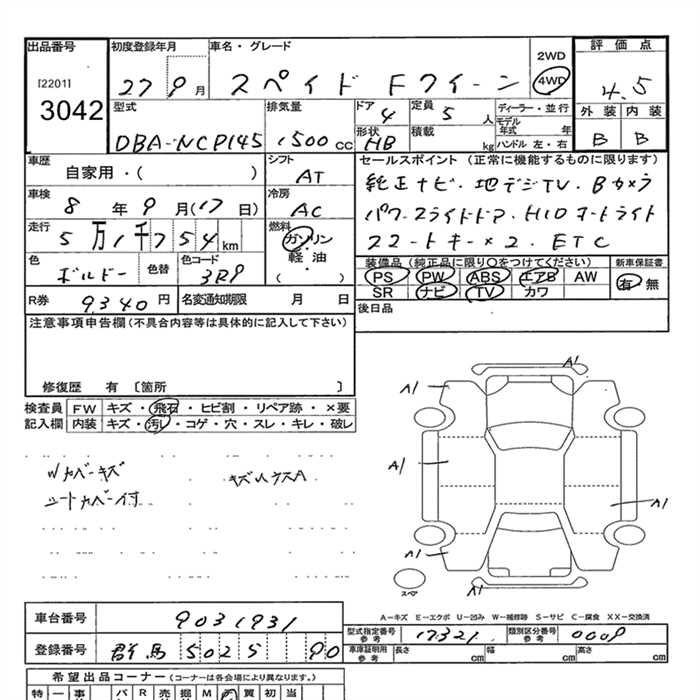 出品番号
[2201]
3042
初度登録年月
27 9 月
車名・グレード
スペイド Fクイーン
2WD
4WD
評価点
4.5
外装 内装
B B
型式
DBA-NCP145
排気量
1500 cc
ドア
4
定員
5 人
形状
HB
積載
kg
ディーラー・並行
モデル年式 年
ハンドル 左・右
車歴
自家用・( )
シフト
AT
車検
8 年 9 月(17 日)
冷房
AC
走行
5万1千754 km
燃料
ガソリン
軽油
( )
色
ボルドー
色替
色コード
3R9
R券
9340 円
名変通知期限 月 日
セールスポイント (正常に機能するものに限ります)
純正ナビ・地デジTV・Bカメラ
パワースライドドア・HIDオートライト
スマートキー×2・ETC
装備品(純正品に限り〇をつけてください)
新車保証書
PS PW ABS エアB AW
SR ナビ TV カワ
有 無
後日品
注意事項申告欄(不具合内容等は具体的に記入して下さい)
修復歴 有 〔箇所 〕
検査員記入欄
FW キズ・飛石・ヒビ割・リペア跡・×要
内装 キズ・汚レ・コゲ・穴・スレ・キレ・破レ
Wカバーキズ
シートカバー付
A1
A1
A1
A1
A1
A1
A1
スペア
A-キズ E-エクボ U-凹み W-補修跡 S-サビ C-腐食 XX-交換済
車台番号
9031931
登録番号
群馬 502 90
型式指定番号 参考
17321
類別区分番号 参考
0009
車庫証明用 参考
長さ cm 幅 cm 高さ cm
希望出品コーナー(コーナーは各会場により異なります。)
特 一 事 パ R 売 掘 M 買 初 当